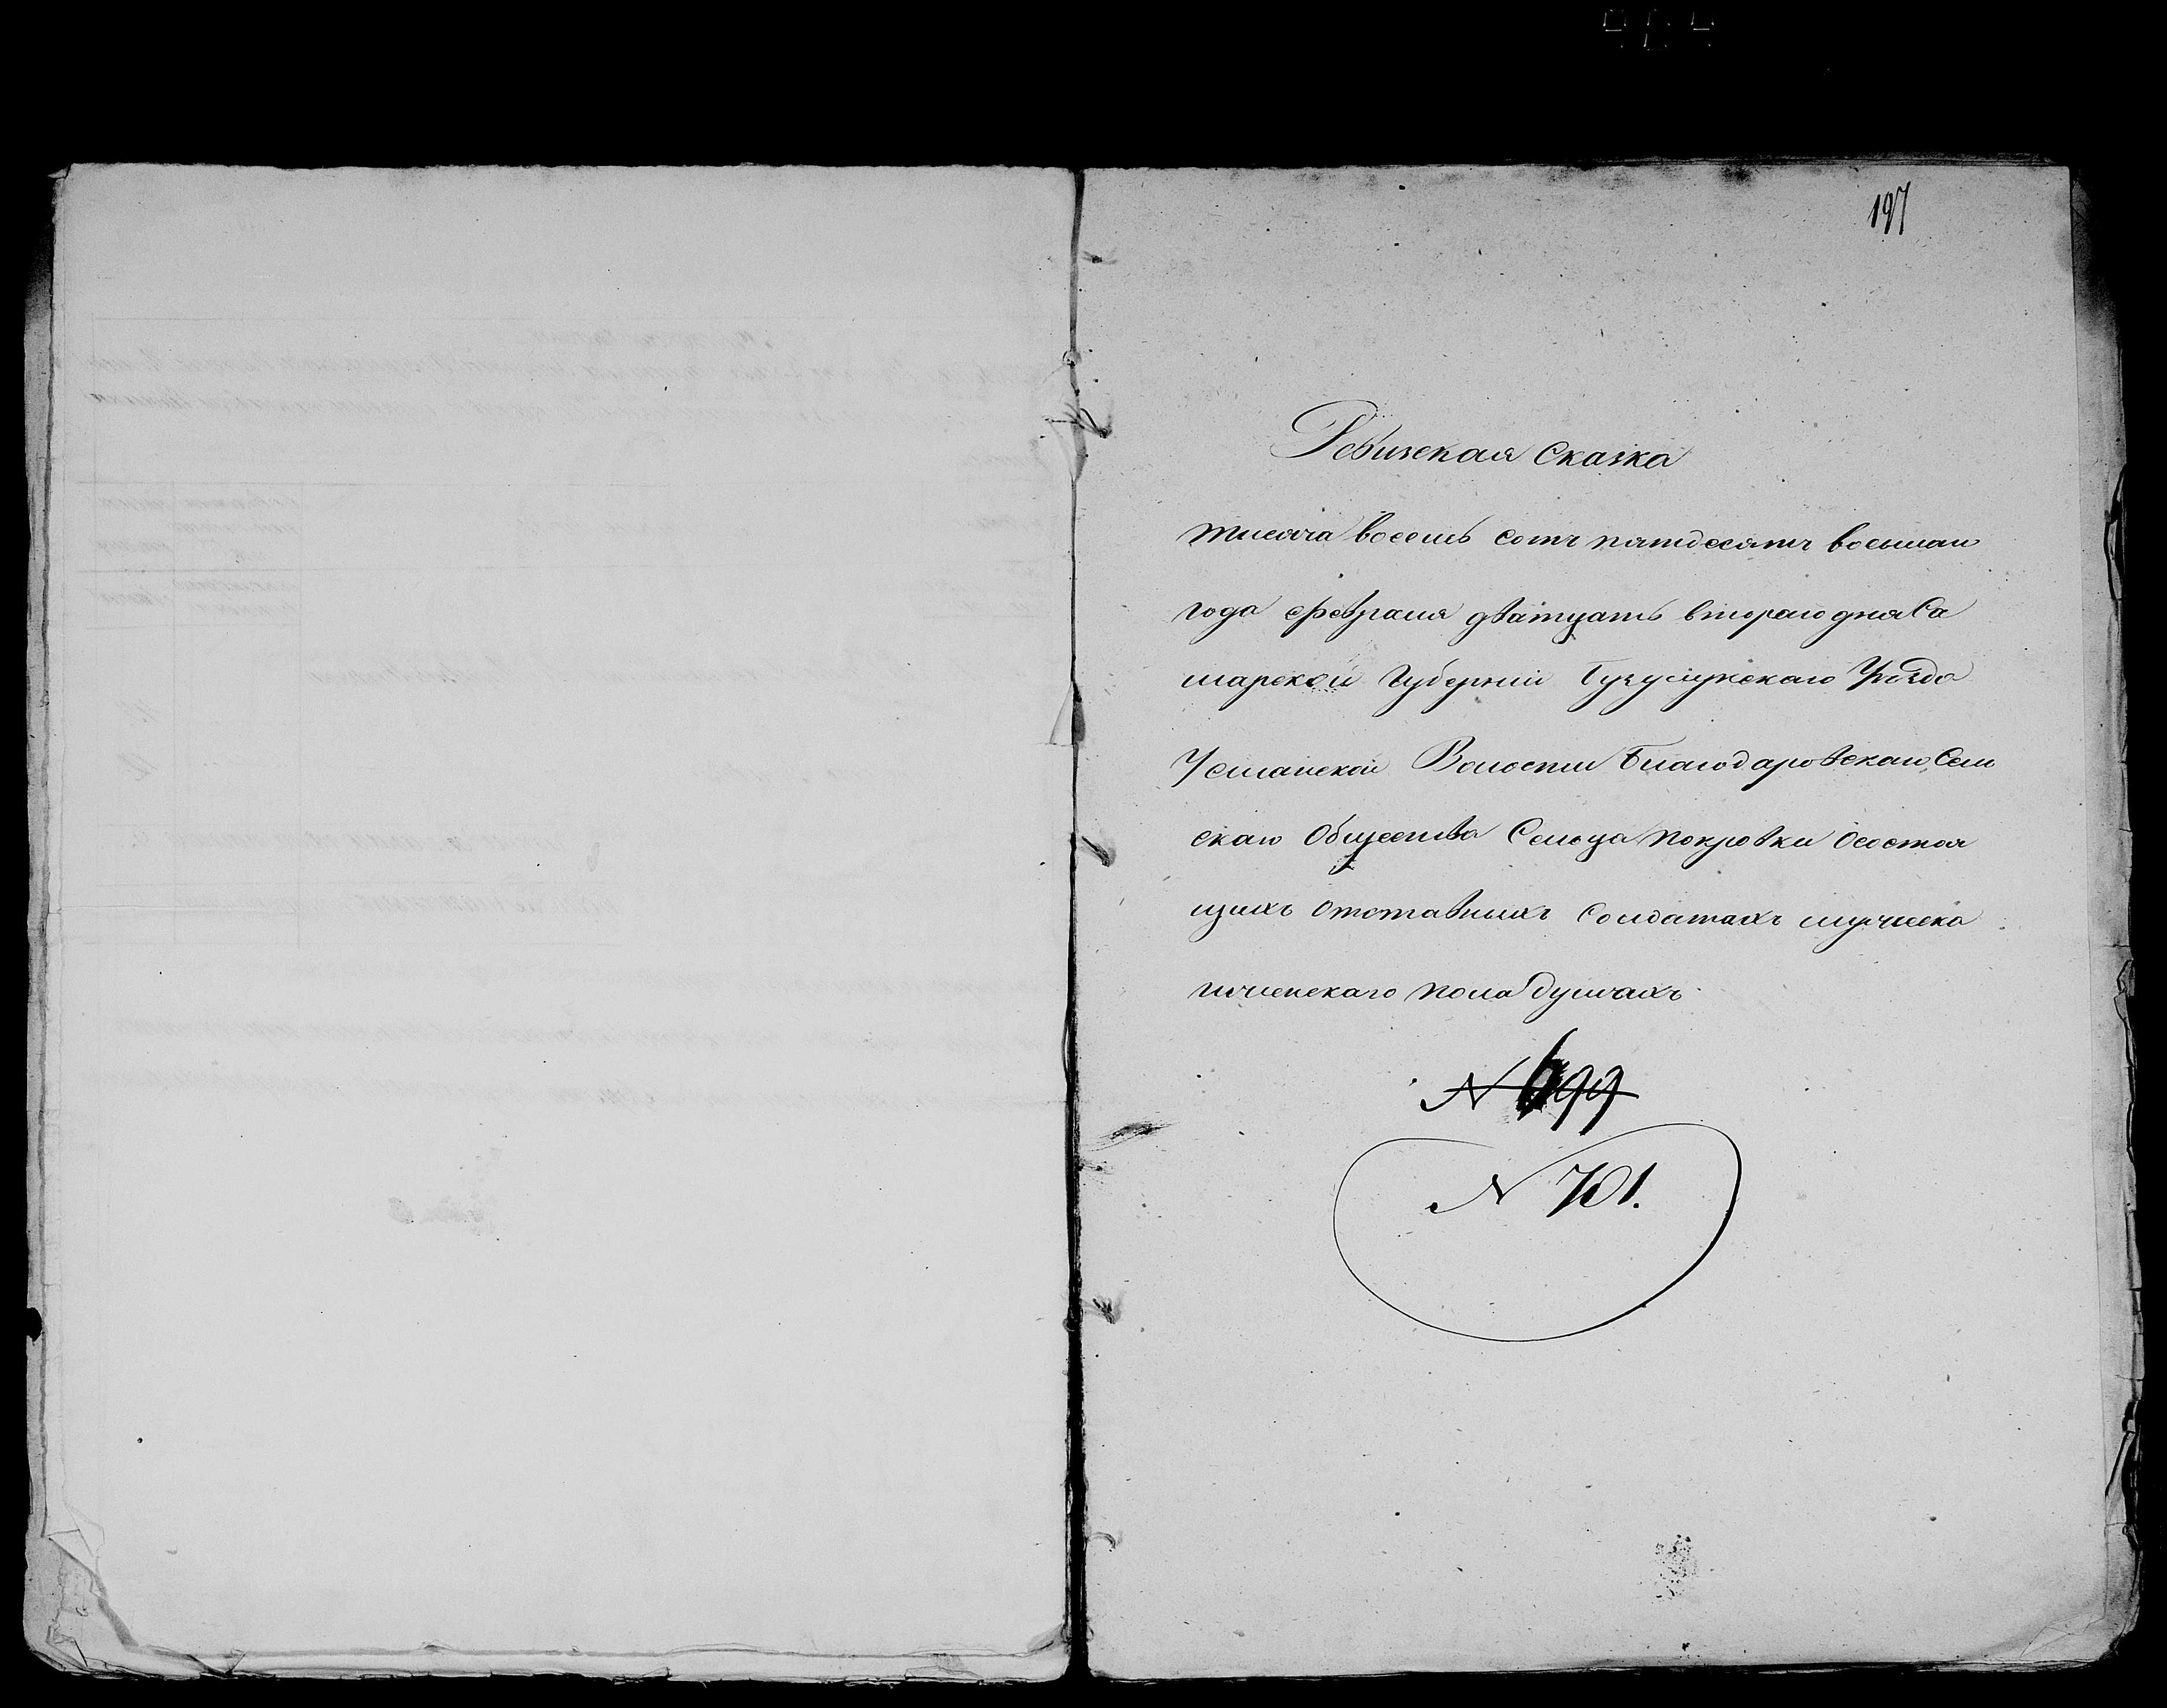 197
Ревизская Сказка
тысяча восемь сотъ пятдесятъ восьмаго
года февраля дватцать втораго дня Са
марской Губерніи Бузулукскаго Уѣзда
Усманской Волости Благодаровскаго Сель
скаго Общества Сельца покровки Осостоя
щихъ отставныхъ Солдатахъ мужеска
иженскаго пола душахъ
N 699
N 701.